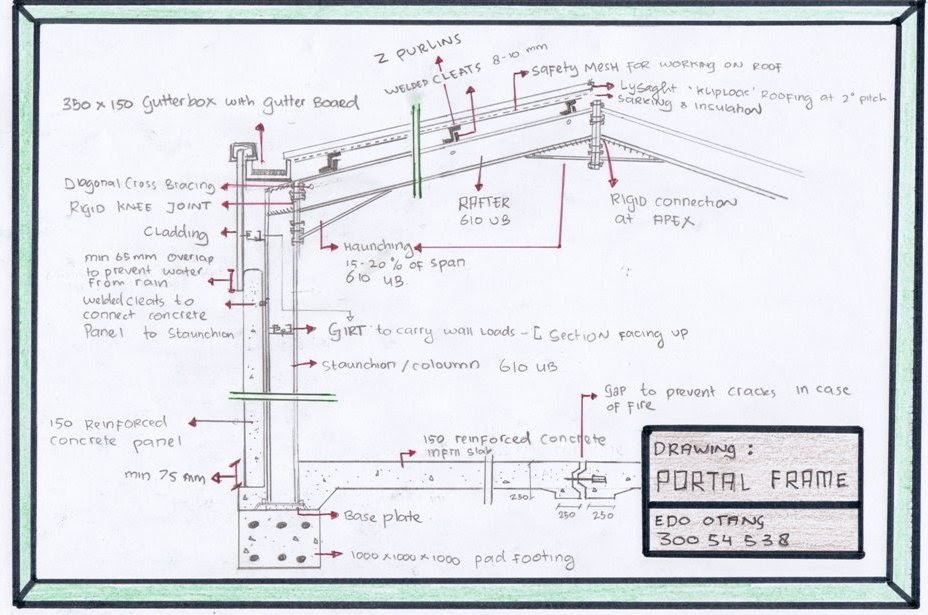 Z PURLINS
WELDED CLEATS 8-10 mm
Safety MESH FOR WORKING ON ROOF
Lysaght 'KLIPLOCK' ROOFING AT 2° pitch
SARKING & INSULATION
350 x 150 Gutterbox with Gutter Board
Diagonal Cross Bracing
RIGID KNEE JOINT
Cladding
min 65 mm overlap
to prevent water
from rain
welded cleats to
connect concrete
Panel to Staunchion
RAFTER
610 UB
RIGID CONNECTION
at APEX
Haunching
15-20% of span
610 UB.
GIRT to carry wall Loads - [ Section Facing UP
Staunchion/coloumn 610 UB
Gap to prevent cracks in case
of fire
150 Reinforced
concrete panel
min 75 mm
150 reinforced concrete
infill slab
250
250
250
Base plate
1000x1000x1000 pad footing
DRAWING :
PORTAL FRAME
EDO OTANG
300 54 538